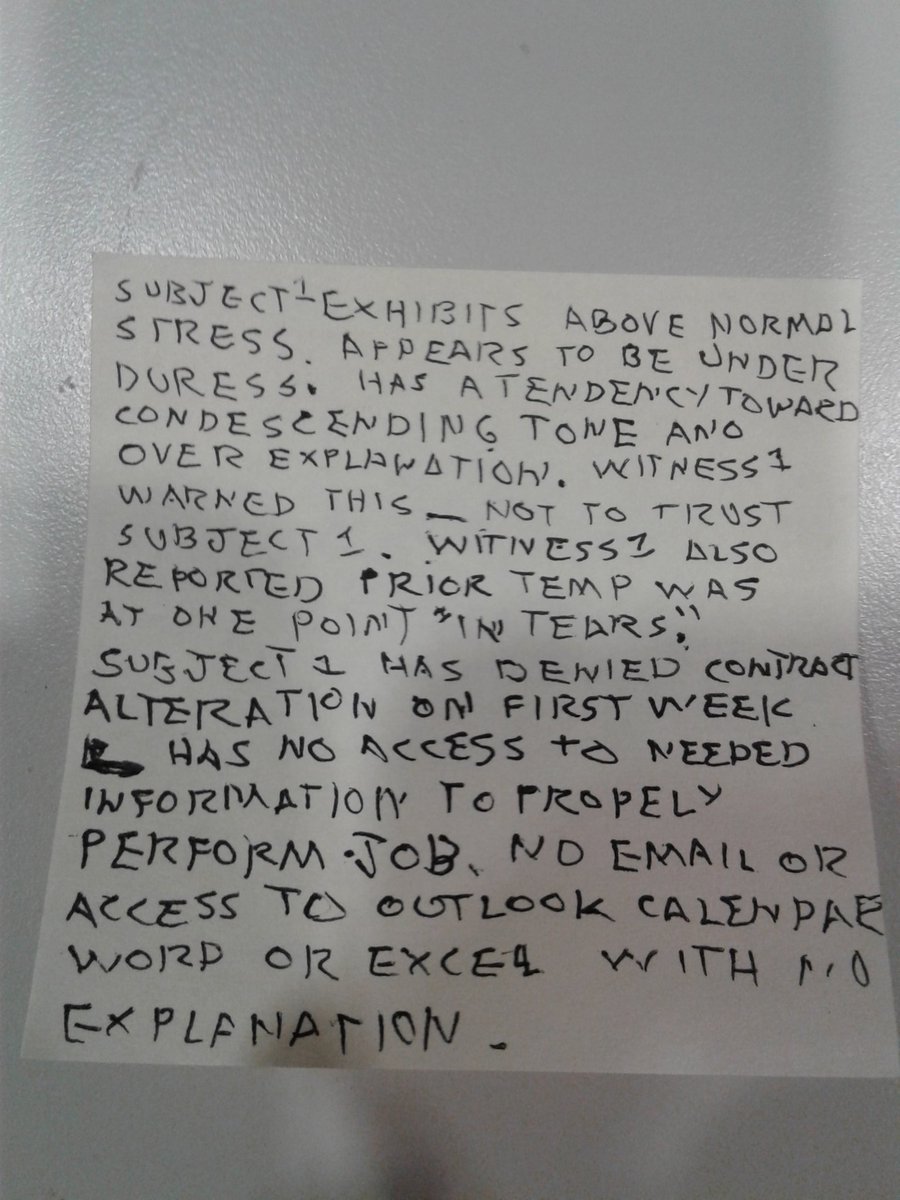 SUBJECT 1 EXHIBITS ABOVE NORMAL
STRESS. APPEARS TO BE UNDER
DURESS. HAS A TENDENCY TOWARD
CONDESCENDING TONE AND
OVER EXPLANATION. WITNESS 1
WARNED THIS _ NOT TO TRUST
SUBJECT 1. WITNESS 1 ALSO
REPORTED PRIOR TEMP WAS
AT ONE POINT "IN TEARS."
SUBJECT 1 HAS DENIED CONTRACT
ALTERATION ON FIRST WEEK
HAS NO ACCESS TO NEEDED
INFORMATION TO PROPELY
PERFORM JOB. NO EMAIL OR
ACCESS TO OUTLOOK CALENDAR
WORD OR EXCEL WITH NO
EXPLANATION.